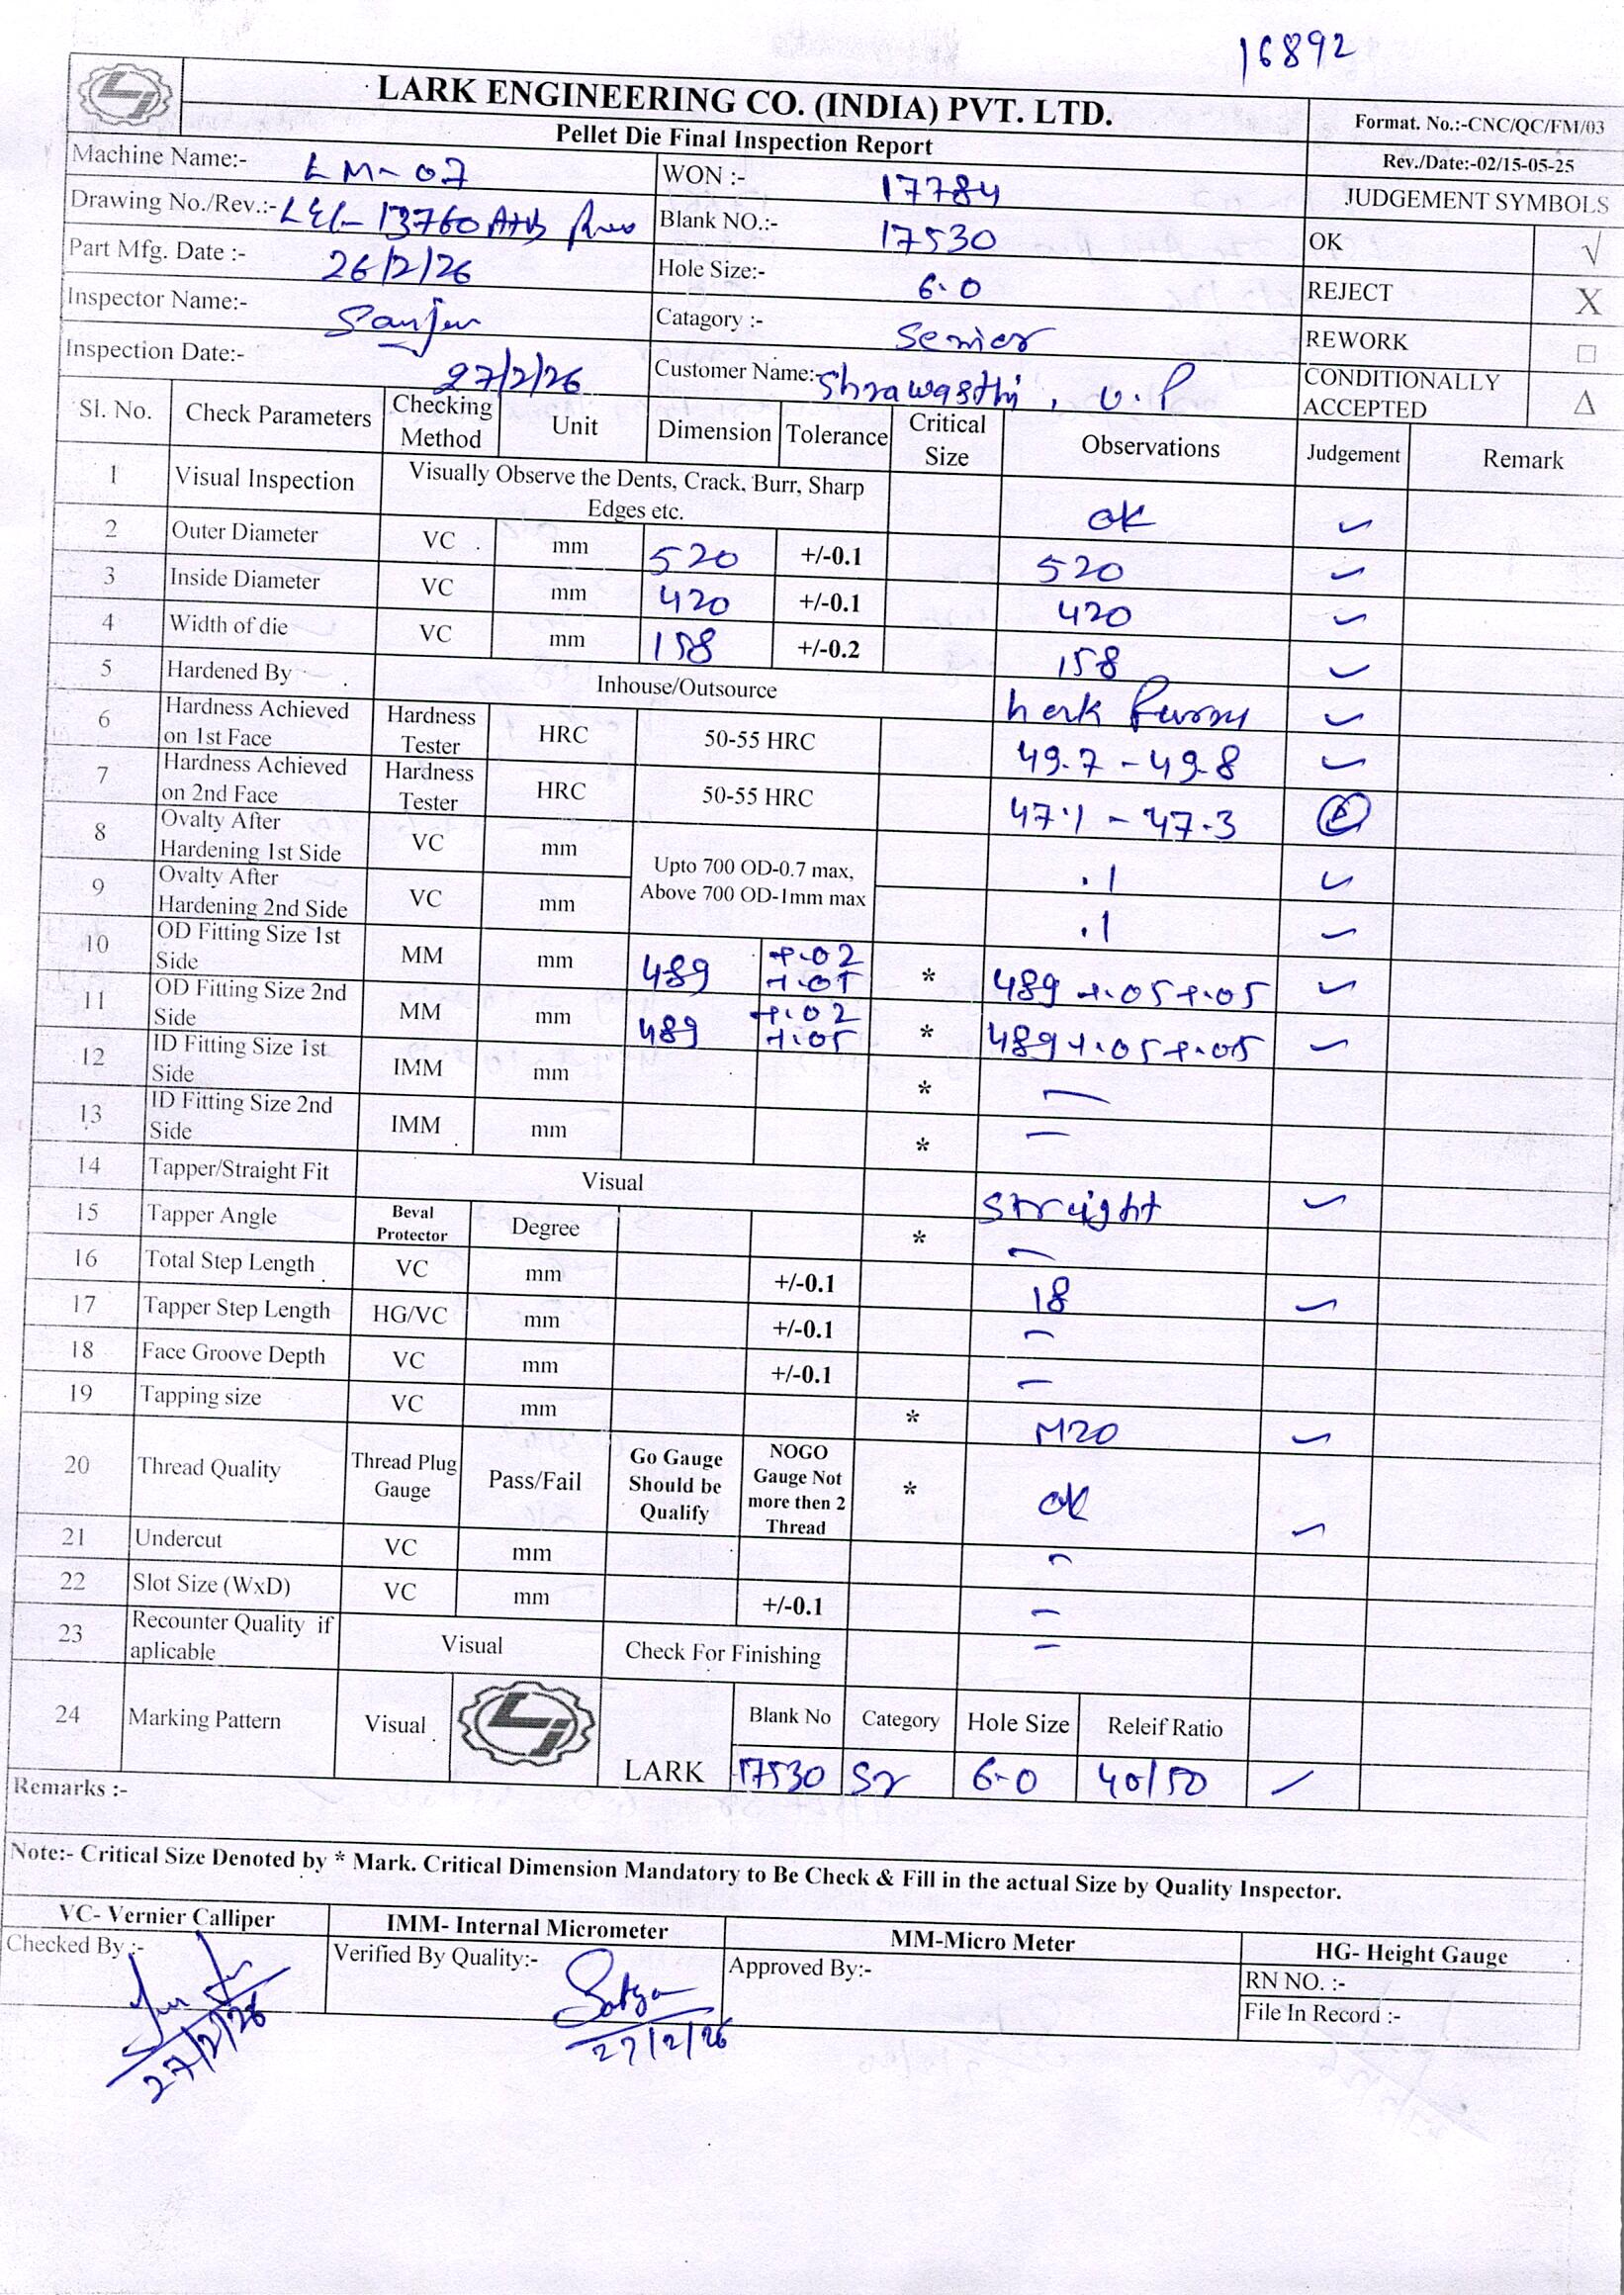 16892
LARK ENGINEERING CO. (INDIA) PVT. LTD.
Pellet Die Final Inspection Report
Format. No.:-CNC/QC/FM/03
Rev./Date:-02/15-05-25
Machine Name:- LM-07 WON :- 17784 JUDGEMENT SYMBOLS
Drawing No./Rev.:- 13760 A+B Blank NO.:- 17530 OK √
Part Mfg. Date :- 26/2/26 Hole Size:- 6.0 REJECT X
Inspector Name:- Catagory :- Senior REWORK □
Inspection Date:- 27/2/26 Customer Name:- Shrawasthi, U.P CONDITIONALLY ACCEPTED Δ
Sl. No. Check Parameters Checking Method Unit Dimension Tolerance Critical Size Observations Judgement Remark
1 Visual Inspection Visually Observe the Dents, Crack, Burr, Sharp Edges etc. ok ✓
2 Outer Diameter VC mm 520 +/-0.1 520 ✓
3 Inside Diameter VC mm 420 +/-0.1 420 ✓
4 Width of die VC mm 158 +/-0.2 158 ✓
5 Hardened By Inhouse/Outsource ✓
6 Hardness Achieved on 1st Face Hardness Tester HRC 50-55 HRC 49.7 - 49.8 ✓
7 Hardness Achieved on 2nd Face Hardness Tester HRC 50-55 HRC 47.1 - 47.3
8 Ovalty After Hardening 1st Side VC mm Upto 700 OD-0.7 max, Above 700 OD-1mm max .1 ✓
9 Ovalty After Hardening 2nd Side VC mm .1 ✓
10 OD Fitting Size 1st Side MM mm 489 +.02 * 489 +.05 +.05 ✓
11 OD Fitting Size 2nd Side MM mm 489 +.02 +.05 * 489 +.05 +.05 ✓
12 ID Fitting Size 1st Side IMM mm * —
13 ID Fitting Size 2nd Side IMM mm * —
14 Tapper/Straight Fit Visual Straight ✓
15 Tapper Angle Beval Protector Degree * —
16 Total Step Length VC mm +/-0.1 18 ✓
17 Tapper Step Length HG/VC mm +/-0.1 —
18 Face Groove Depth VC mm +/-0.1 —
19 Tapping size VC mm * M20 ✓
20 Thread Quality Thread Plug Gauge Pass/Fail Go Gauge Should be Qualify NOGO Gauge Not more then 2 Thread * ok ✓
21 Undercut VC mm —
22 Slot Size (WxD) VC mm +/-0.1 —
23 Recounter Quality if aplicable Visual Check For Finishing —
24 Marking Pattern Visual LARK Blank No Category Hole Size Releif Ratio
17530 Sr 6.0 40/50 ✓
Remarks :-
Note:- Critical Size Denoted by * Mark. Critical Dimension Mandatory to Be Check & Fill in the actual Size by Quality Inspector.
VC- Vernier Calliper IMM- Internal Micrometer MM-Micro Meter HG- Height Gauge
Checked By :- Verified By Quality:- Approved By:- RN NO. :-
File In Record :-
27/2/26 27/2/26